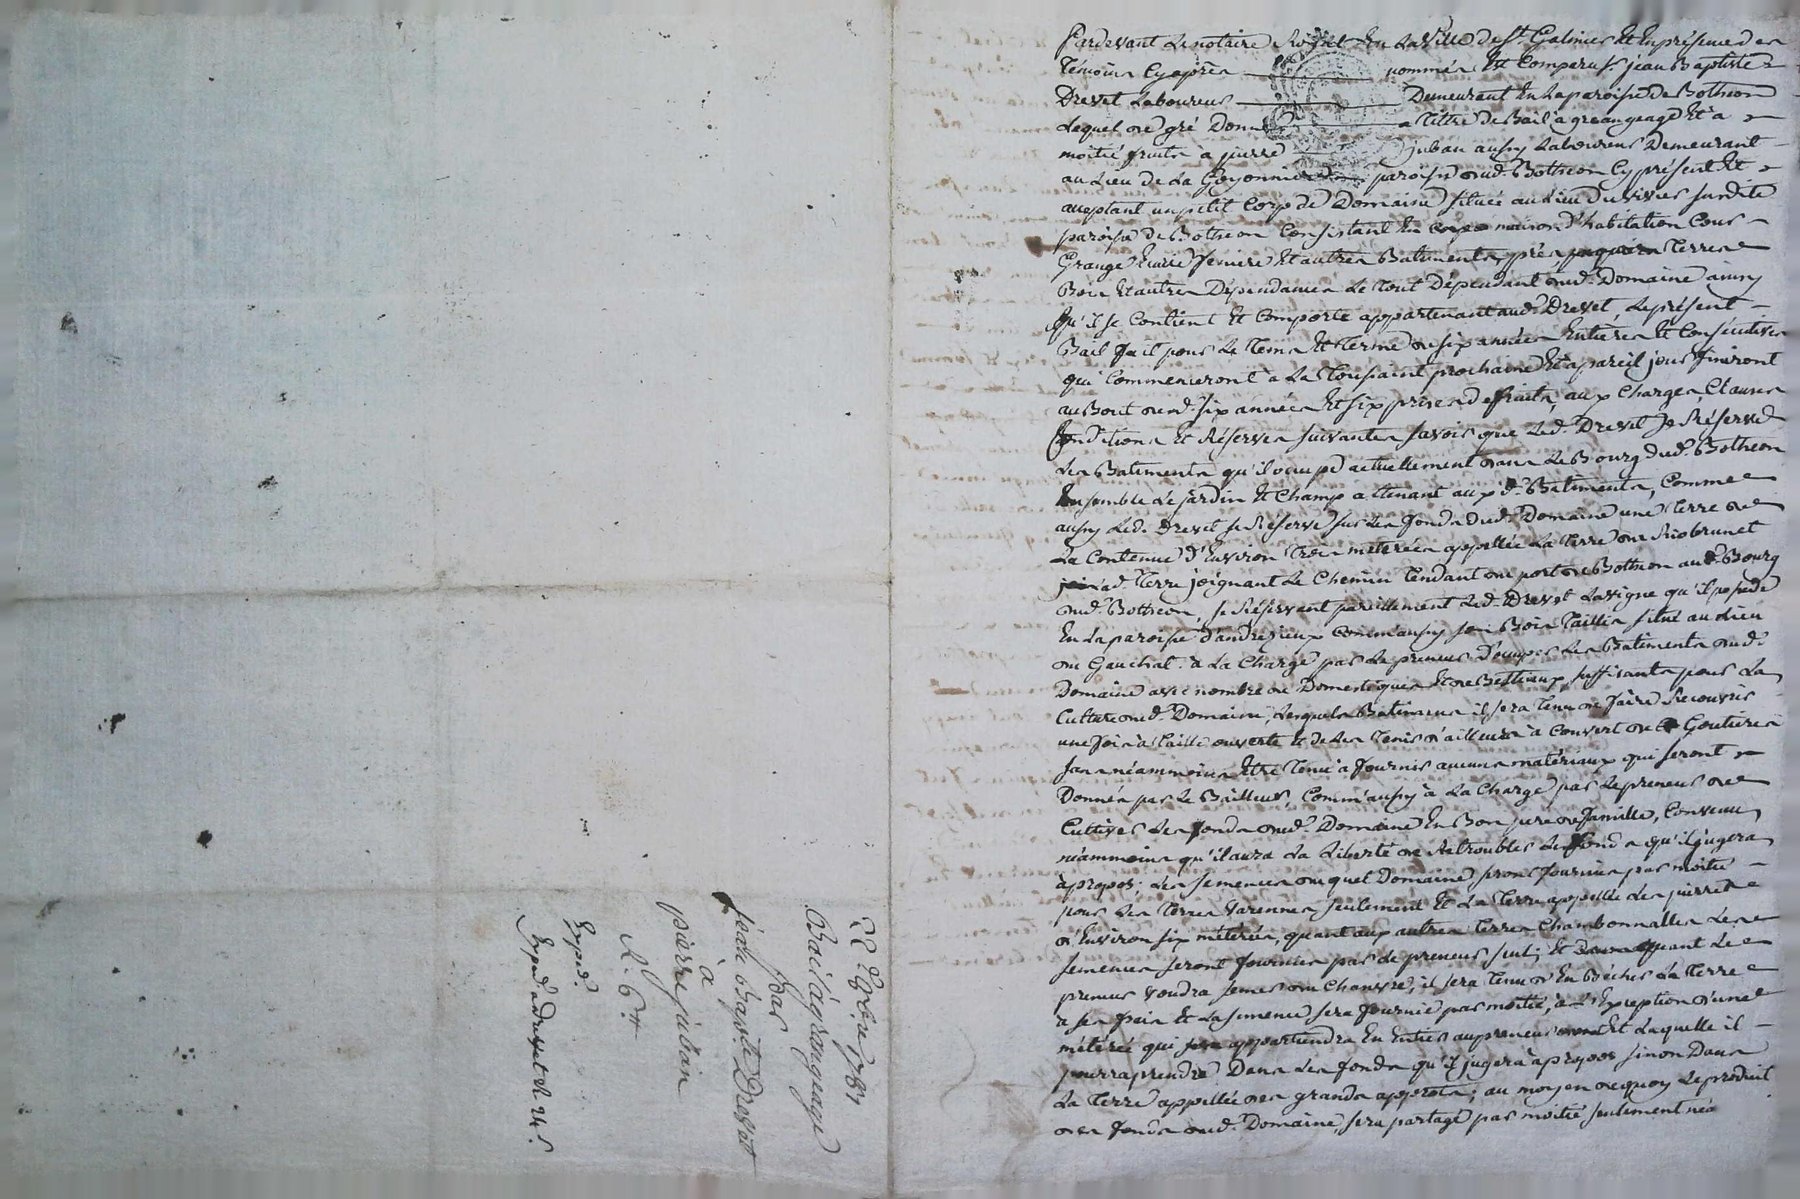 22 7bre 1781
Bail a grangeage
par
jean Bapte Drevet
à
pierre juban
R. 6tt
Expd.
Expd a drevet R 24 s.
Pardevant Le notaire Royal En La Ville de St Galmier Et En présence des
Témoins Cy après nommés Est Comparu sr. jean Baptiste
Drevet Laboureur Demeurant En La paroisse de Botheon
Lequel de gré Donne a Tittre de Bail a grangeage Et à
moitié fruits à pierre juban aussy Laboureur Demeurant
au Lieu de La paroisse dud. Botheon Cy présent Et
acceptant un petit Corp de Domaine située au Lieu du vivier susdite
paroisse de Botheon Consistant En maison d'habitation Cour
Grange Ecurie feniere Et autres Batiments, prés Terres
Bois Et autres Dépendances Le Tout Dépendant dud. Domaine ainsy
qu'il se Contient Et Comporte appartenant aud. Drevet, Le présent
Bail fait pour Le Tems Et Terme de six années Entieres Et Consécutives
qui Commenceront à La Toussaint prochaine Et a pareil jour finiront
au Bout desd. six années Et six prises de fruits, aux Charges, Clauses
Conditions Et Réserves suivantes savoir que Led. Drevet se Réserve
Les Batiments qu'il occupe actuellement dans Le Bourg dud. Botheon
Ensemble Le jardin Et Champ attenant auxd. Batiments, Comme
aussy Led. Drevet se Réserve sur Les fonds dud. Domaine une Terre de
La Contenue d'Environ Trois métérées appellée La Terre de Riobrunet
Lad. Terre joignant Le Chemin Tendant du port de Botheon au Bourg
dud. Botheon, se Réservant pareillement Led. Drevet La vigne qu'il possede
En La paroisse d'andrezieux Comm'aussy son Bois Taillis situé au Lieu
du Gauchat. à La Charge par Le preneur D'occuper Les Batiments dud.
Domaine avec nombre de Domestiques Et de Bestiaux suffisants pour La
Culture dud. Domaine, Lesquels Batiments il sera Tenu de faire Recouvrir
une fois à Taille ouverte Et de Les Tenir d'ailleurs à Couvert de Goutieres
sans néammoins Etre Tenu à fournir aucuns matériaux qui seront
Donnés par Le Bailleur, Comm'aussy à La Charge par Le preneur de
Cultiver Les fonds dud. Domaine En Bon pere de famille, Convenu
néammoins qu'il aura La Liberté de Retroubler Les fonds qu'il jugera
àpropos; Les semences duquel Domaine seront fournies par moitié
pour Les Terres varennes seulement Et La Terre appellée Les
d'Environ six métérées, quant aux autres Terres Chambonnalles Les
semences seront fournies par Le preneur seul; Et quant Le
preneur voudra semer du Chanvre, il sera Tenu d'En Bécher La Terre
a ses frais Et La semence sera fournie par moitié, à L'Exception d'une
métérée qui appartiendra En Entier au preneur Et Laquelle il
pourra prendre Dans Les fonds qu'il jugera àpropos sinon Dans
La Terre appellée des grands; au moyen de quoy Le produit
des fonds dud. Domaine, sera partagé par moitié seulement